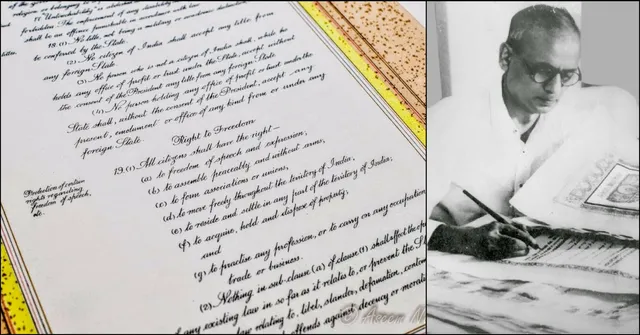 17. "Untouchability" is abolished
forbidden. The enforcement of any disability
shall be an offence punishable in accordance with
18. (1) No title, not being a military or academic distinction,
be conferred by the State.
(2) No citizen of India shall accept any title from
any foreign State.
(3) No person who is not a citizen of India shall, while he
holds any office of profit or trust under the State, accept without
the consent of the President any title from any foreign State.
(4) No person holding any office of profit or trust under the
State shall, without the consent of the President, accept any
present, emolument or office of any kind from or under any
foreign State.
Right to Freedom
Protection of certain
rights regarding
freedom of speech,
etc.
19. (1) All citizens shall have the right —
(a) to freedom of speech and expression;
(b) to assemble peaceably and without arms;
(c) to form associations or unions;
(d) to move freely throughout the territory of India;
(e) to reside and settle in any part of the territory of India;
(f) to acquire, hold and dispose of property;
and
(g) to practise any profession, or to carry on any occupation,
trade or business.
(2) Nothing in sub-clause (a) of clause (1) shall affect the
any existing law in so far as it relates to, or prevent the
law relating to, libel, slander, defamation,
offends against decency or